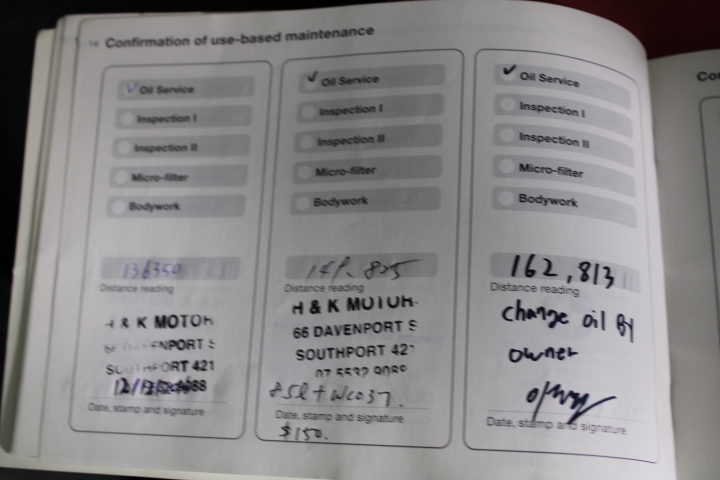 14 Confirmation of use-based maintenance
Oil Service
Inspection I
Inspection II
Micro-filter
Bodywork
136350
Distance reading
H & K MOTOR
SOUTHPORT 421
Date, stamp and signature
Oil Service
Inspection I
Inspection II
Micro-filter
Bodywork
Distance reading
H & K MOTOR
66 DAVENPORT S
SOUTHPORT 421
07 5532 9088
Date, stamp and signature
$150.
Oil Service
Inspection I
Inspection II
Micro-filter
Bodywork
162,813
Distance reading
change oil By
owner
Date, stamp and signature
Co